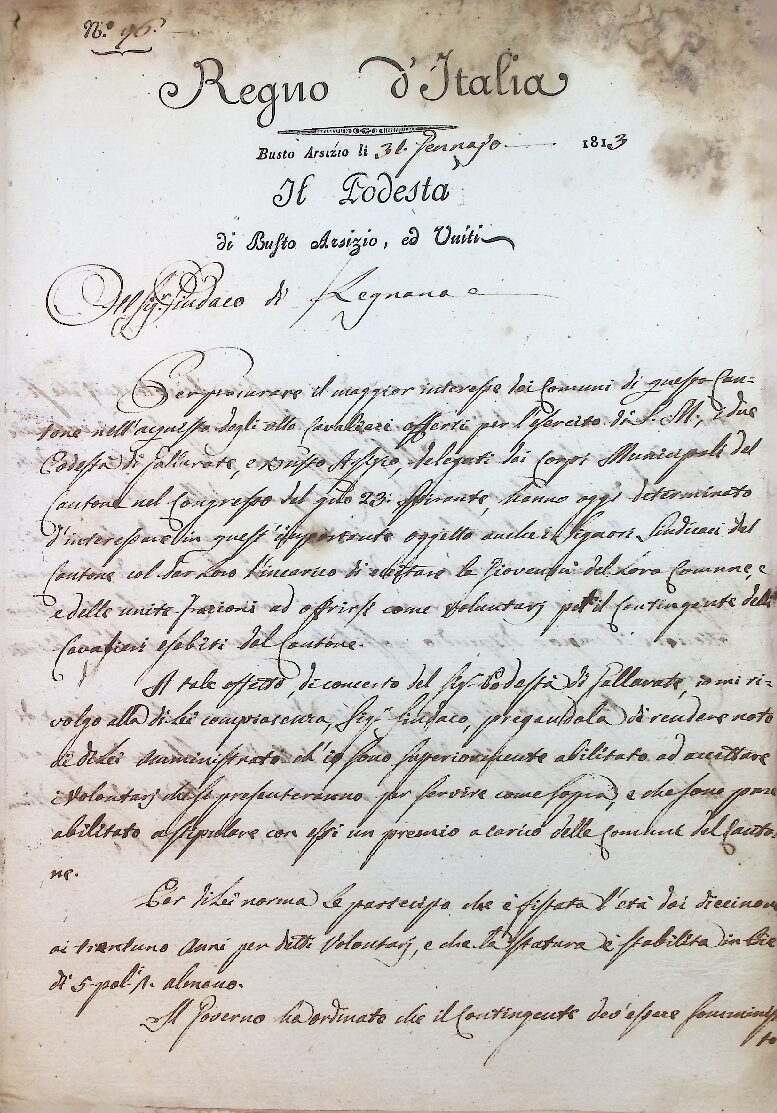 N.º 96.
Regno d'Italia
Busto Arsizio li 31. Gennajo 1813
Il Podestà
di Busto Arsizio, ed Uniti
Al Sig.r Sindaco di Legnana
Per procurare il maggior interesse dei Comuni di questo Can-
tone nell'acquisto degli otto Cavalieri offerti per l'esercito di S. M., i due
Podestà di Gallarate, e Busto Arsizio, delegati dai Corpi Municipali del
Cantone nel Congresso del gno 23. spirante, hanno oggi determinato
d'interessare in quest'importante oggetto anche i Signori Sindaci del
Cantone col dar loro l'incarico di eccitare la Gioventù del loro Comune, e
e delle unite frazioni ad offrirsi come Volontarj pel il Contingente delli
Cavalieri esibiti dal Cantone.
A tale effetto di concerto del Sig.r Podestà di Gallarate, io mi ri-
volgo alla di Lei compiacenza, Sig.r Sindaco, pregandola di rendere noto
ai di Lei Amministrati ch'io sono superiormente abilitato ad accettare
i Volontarj che si presenteranno per servire come sopra, e che sono pure
abilitato a stipulare con essi un premio a carico delle Comune del Canto-
ne.
Per di Lei norma Le partecipo che è fissata l'età dai diecinove
ai trentuno Anni per detti Volontarj, e che la statura è stabilita in Piedi
di 5 pol.i 1. almeno.
Il Governo ha ordinato che il Contingente dev'essere somminis-